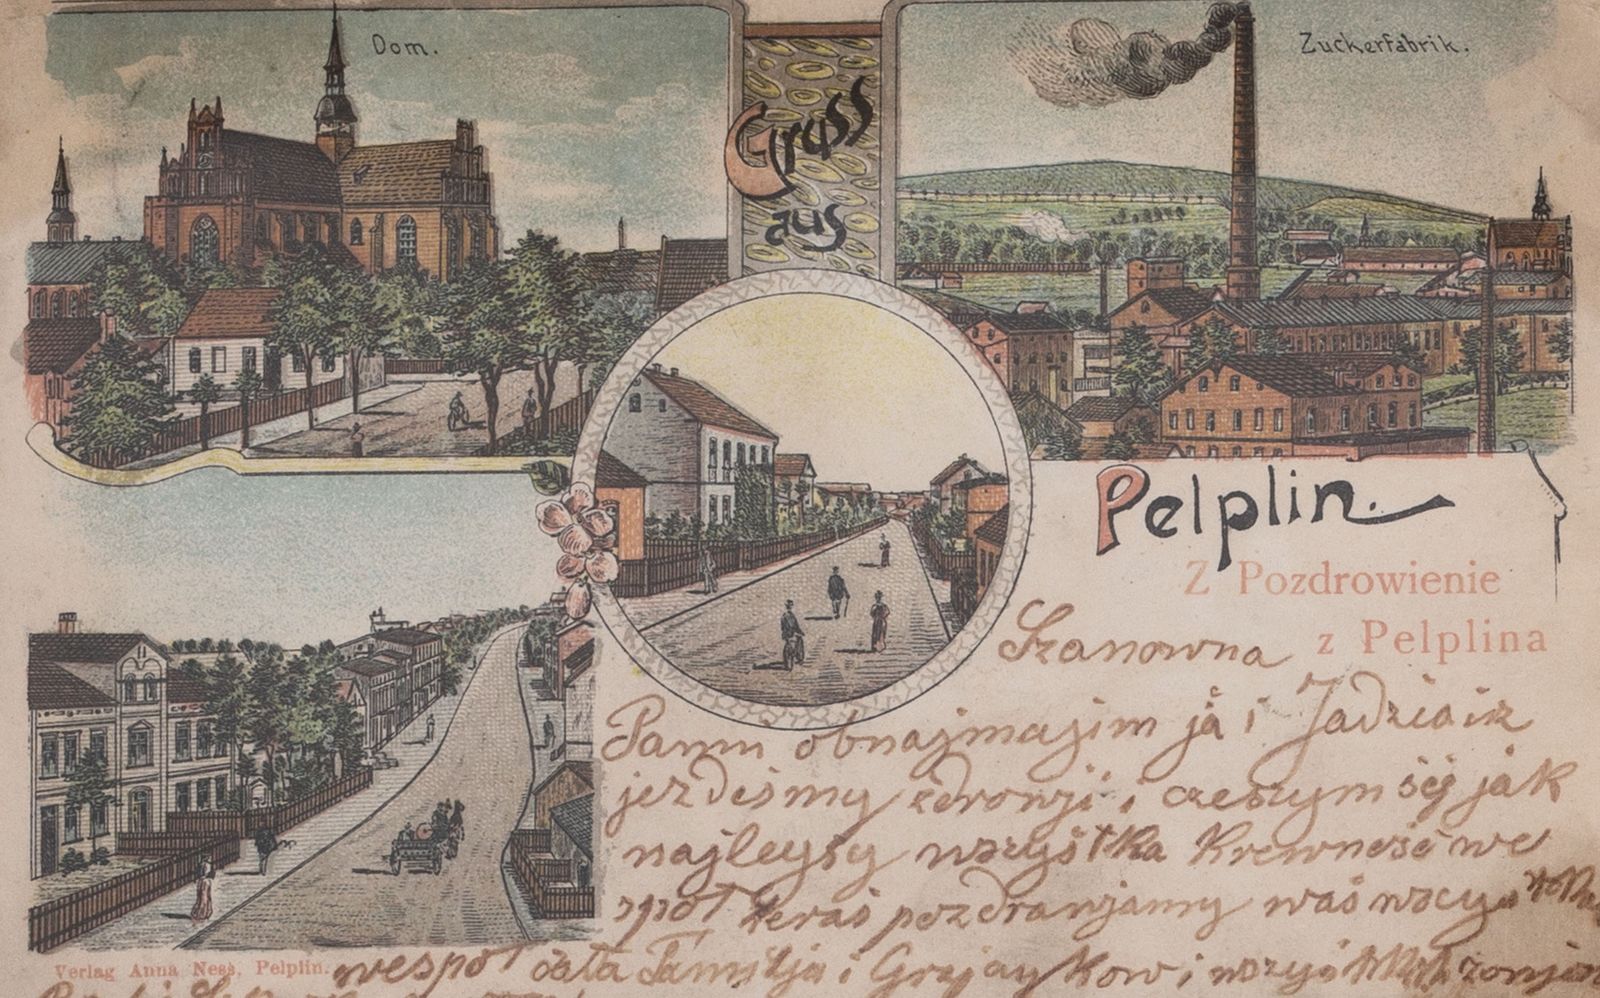 Dom.
Gruss
aus
Zuckerfabrik.
Pelplin.
Z Pozdrowienie
z Pelplina
Szanowna
Panni obnajmajim ja i Jadzia iz
jezdeśmy zdronji i czeszym siej jak
najleysy wszystka Krewneść we
spot teras pozdranjamy waś wszys
wespot cała Familja i Grajaykow i wszyś
Verlag Anna Ness, Pelplin.